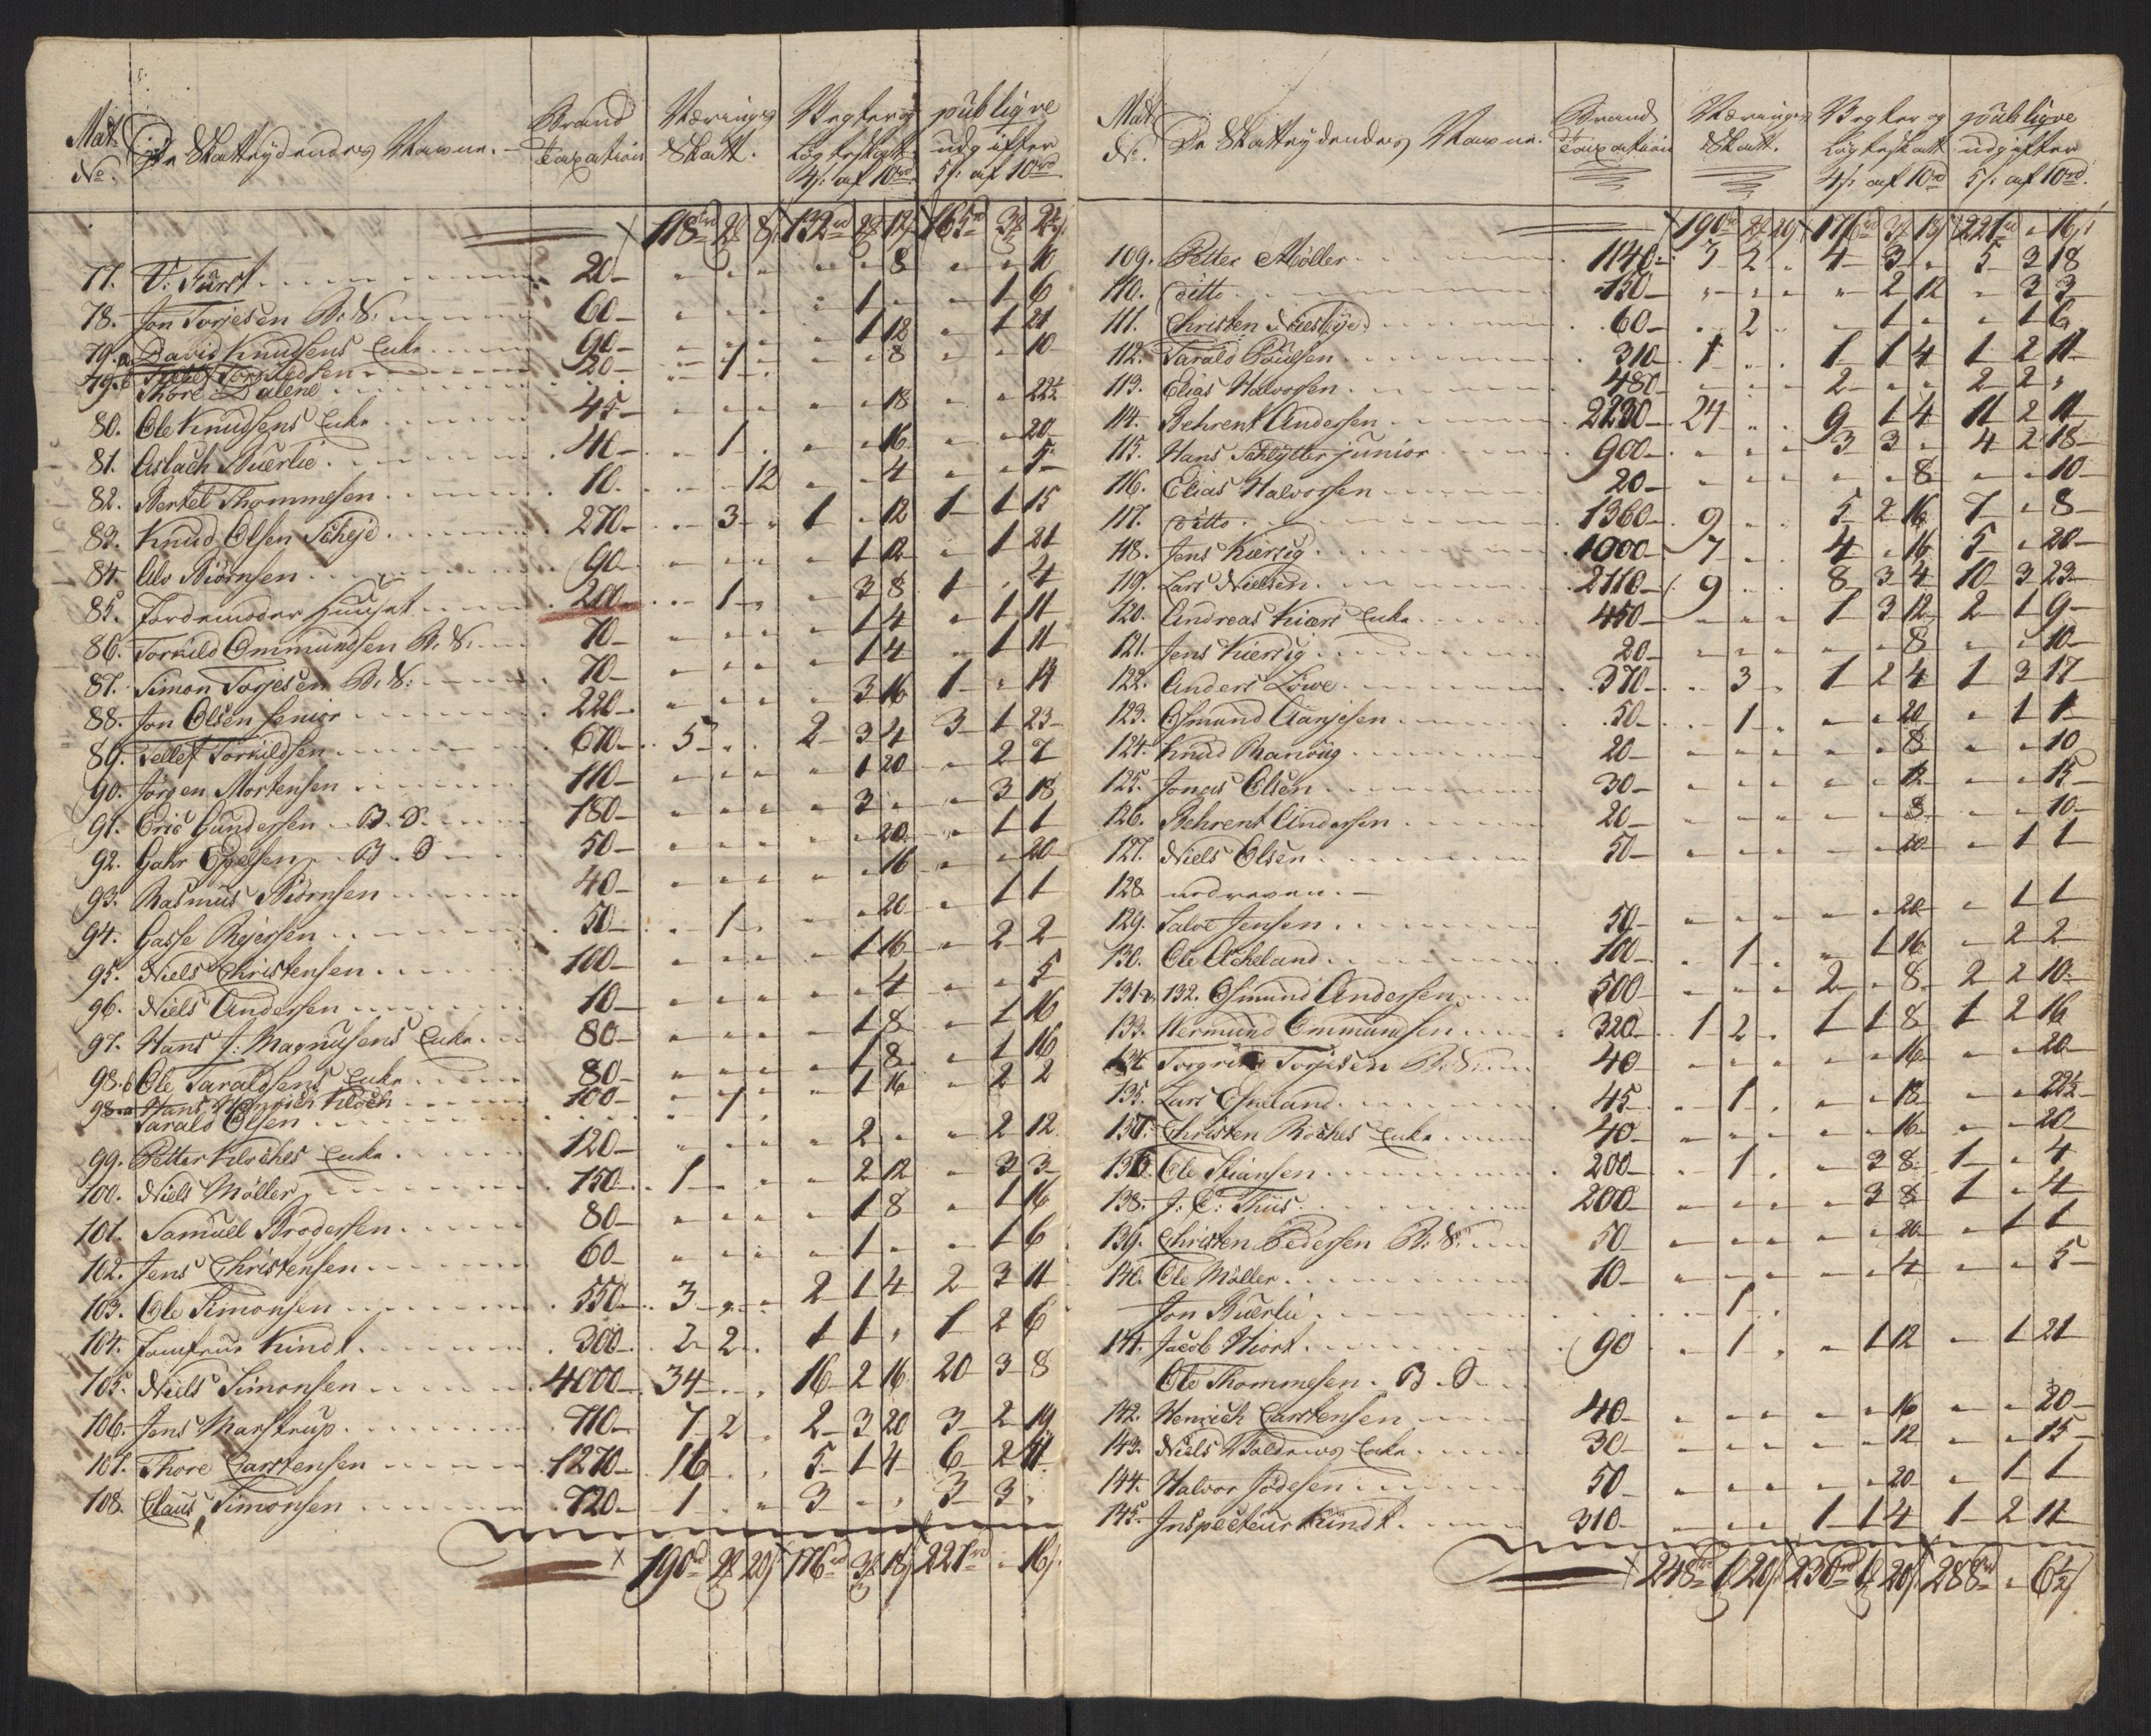 Mat: De Skatteydendes Navne. Brand Nærings Vegter og publiqve
No. Taxation Skatt. Løgteskatt udgifter
4s: af 10rd 5s: af 10rd
118rd 2 8s 132rd 2 12s 165rd 3 2½s
77. V: Fürst 20 - - - - - 8 - - 10
78. Jon Torjesen B: S: 60 - - - - 1 - - 1 6
79.a David Knudsens Enke 90 - - - - 1 12 - 1 21
79.b Tellef Torkildsen 20 - 1 - - - 8 - - 10
Thore Dalene
80. Ole Knudsens Enke 45 - - - - - 18 - - 22½
81. Aslach Buerlie 40 - 1 - - - 16 - - 20
82. Bertel Thommesen 10 - - 12 - - 4 - - 5
83. Knud Olsen Scheje 270 - 3 - 1 - 12 1 1 15
84. Als Biørnsen 90 - - - - 1 12 - 1 21
85. Jordemoder Huuset 200 - 1 - - 3 8 1 - 4
86. Torkild Ommundsen B: S: 70 - - - - 1 4 - 1 11
87. Simon Torjesen B: S: 70 - - - - 1 4 - 1 11
88. Jon Olsen senior 220 - - - - 3 16 1 - 14
89. Tellef Torkildsen 670 5 - - 2 3 4 3 1 23
90. Jørgen Mortensen 110 - - - - 1 20 - 2 7
91. Eric Gundersen B. S. 180 - - - - 3 - - 3 18
92. Gahr Eyelsen B. S 50 - - - - - 20 - 1 1
93. Rasmus Biørnsen 40 - - - - - 16 - - 20
94. Gasse Rejersen 50 - 1 - - - 20 - 1 1
95. Niels Christensen 100 - - - - 1 16 - 2 2
96. Niels Andersen 10 - - - - - 4 - - 5
97. Hans J: Magnusens Enke 80 - - - - 1 8 - 1 16
98.b Ole Taraldsens Enke 80 - - - - 1 8 - 1 16
98.a Hans Henrich Kloch 100 - - - - 1 16 - 2 2
Tarald Olsen - 1 -
99. Petter Kloches Enke 120 - - - - 2 - - 2 12
100. Niels Møller 150 1 - - - 2 12 - 3 3
101. Samuel Brodersen 80 - - - - 1 8 - 1 16
102. Jens Christensen 60 - - - - 1 - - 1 6
103. Ole Simonsen 550 3 - - 2 1 4 2 3 11
104. Jomfrue Kindt 300 2 2 - 1 1 - 1 2 6
105. Niels Simonsen 4000 34 - - 16 2 16 20 3 8
106. Jens Marstrup 710 7 2 - 2 3 20 3 2 19
107. Thore Carstensen 1270 16 - - 5 1 4 6 2 11
108. Claus Simonsen 720 1 - - 3 - - 3 3 -
190rd 2 20s 176rd 3 18s 221rd - 16s
Mat: De Skatteydendes Navne. Brand Nærings Vegter og publiqve
No. Taxation Skatt. Løgteskatt udgifter
4s: af 10rd 5s: af 10rd.
190rd 2 20s 176rd 3 18s 221rd - 16s
109. Petter Møller 1140 3 2 - 4 3 - 5 3 18
110. ditto 150 - - - - 2 12 - 3 3
111. Christen Næsbye 60 - 2 - - 1 - - 1 6
112. Tarald Poulsen 310 1 - - 1 1 4 1 2 11
113. Elias Halvorsen 480 - - - 2 - - 2 2 -
114. Behrent Andersen 2230 24 - - 9 1 4 11 2 11
115. Hans Schlytter junior 900 - - - 3 3 - 4 2 18
116. Elias Halvorsen 20 - - - - - 8 - - 10
117. ditto 1360 9 - - 5 2 16 7 - 8
118. Jens Kiersig 1000 7 - - 4 - 16 5 - 20
119. Lars Nielsen 2110 9 - - 8 3 4 10 3 23
120. Andreas Kiærs Enke 450 - - - 1 3 12 2 1 9
121. Jens Kiersig 20 - - - - - 8 - - 10
122. Anders Löwe 370 - 3 - 1 2 4 1 3 17
123. Osmund Aanjesen 50 - 1 - - - 20 - 1 1
124. Knud Ranvüg 20 - - - - - 8 - - 10
125. Jonas Olsen 30 - - - - - 12 - - 15
126. Behrent Andersen 20 - - - - - 8 - - 10
127. Niels Olsen 50 - - - - - 20 - 1 1
128
129. Salve Jensen 50 - - - - - 20 - 1 1
130. Ole Aheland 100 - 1 - - 1 16 - 2 2
131 & 132. Osmund Andersen 500 - - - 2 - 8 2 2 10
133. Nermund Ommundsen 320 1 2 - 1 1 8 1 2 16
134. Torgrim Torjesen B: S: 40 - - - - - 16 - - 20
135. Lars Eseland 45 - 1 - - - 18 - - 22½
137. Christen Roches Enke 40 - - - - - 16 - - 20
136. Ole Stiansen 200 - 1 - - 3 8 1 - 4
138. J: C: Thiis 200 - - - - 3 8 1 - 4
139. Christen Pedersen B: S: 50 - - - - - 20 - 1 1
140. Ole Møller 10 - - - - - 4 - - 5
Jon Buerlie - 1 -
141. Jacob Hiort 90 - 1 - - 1 12 - 1 21
Ole Thommesen. B. S.
142. Henrich Carstensen 40 - - - - - 16 - - 20
143. Niels Enke 30 - - - - - 12 - - 15
144. Halvor Jødesen 50 - - - - - 20 - 1 1
145. Inspecteur Kindt 310 - - - 1 1 4 1 2 11
248rd 1 20s 230rd 1 20s 288rd - 6½s